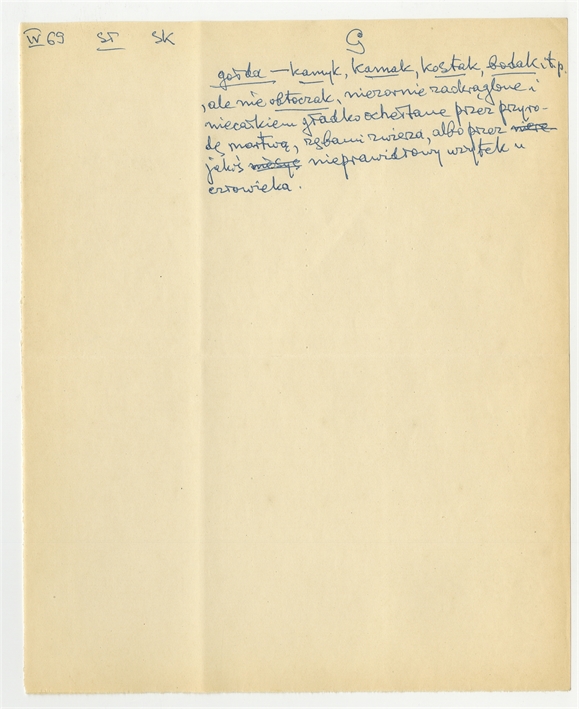 IV 69 ST SK G
gołda – kamyk, kamak, kostak, bodak itp.
, ale nie obtoczak, nierównie zaokrąglone i
niecałkiem gładko ochełtane przez przyro-
dę martwą, zębami zwierza, albo przez
jakiś nieprawidłowy użytek u
człowieka.